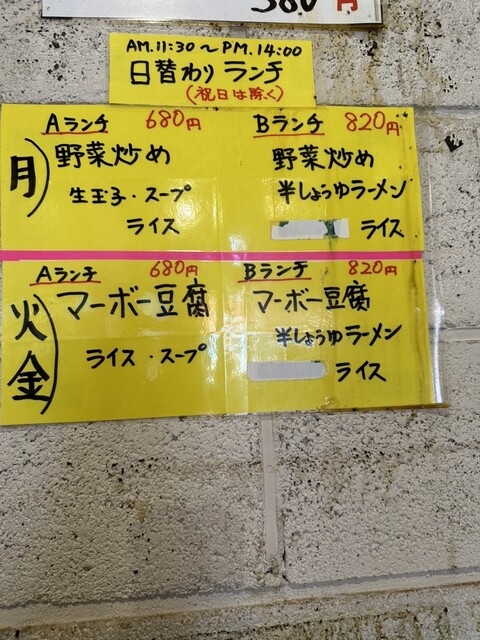 380円
AM.11:30～PM.14:00
日替わりランチ
(祝日は除く)
月)
Aランチ 680円
野菜炒め
生玉子・スープ
ライス
Bランチ 820円
野菜炒め
半しょうゆラーメン
ライス
火
金)
Aランチ 680円
マーボー豆腐
ライス・スープ
Bランチ 820円
マーボー豆腐
半しょうゆラーメン
ライス